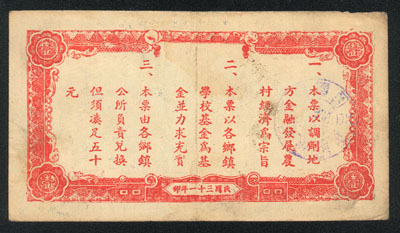 一、本票以調劑地
方金融發展農
村經濟為宗旨
二、本票以各鄉鎮
學校基金為基
金並力求充實
三、本票由各鄉鎮
公所負責兌換
但須湊足五十
元
民國三十一年印